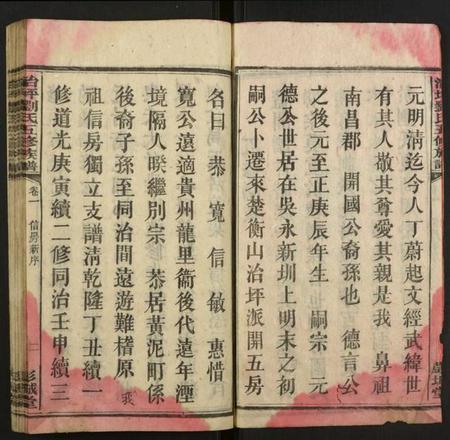 元明清迄今人丁蔚起文經武緯世
有其人敬其尊愛其親是我 鼻祖
南昌郡 開國公裔孫也 德言公
之後元至正庚辰年生 嗣宗 元
德公世居在吳永新圳上明末之初
嗣公卜遷來楚衡山治坪派開五房
名曰 恭 寬 信 敏 惠惜
寬公遠適貴州龍里衛後代遠年湮
境隔人睽繼別宗 恭居黃泥町係
後裔子孫至同治間遠遊難稽原 我
祖信房獨立支譜清乾隆丁丑續一
修道光庚寅續二修同治壬申續三
治坪劉氏五修族譜
卷一 信房新序
一
彭城堂